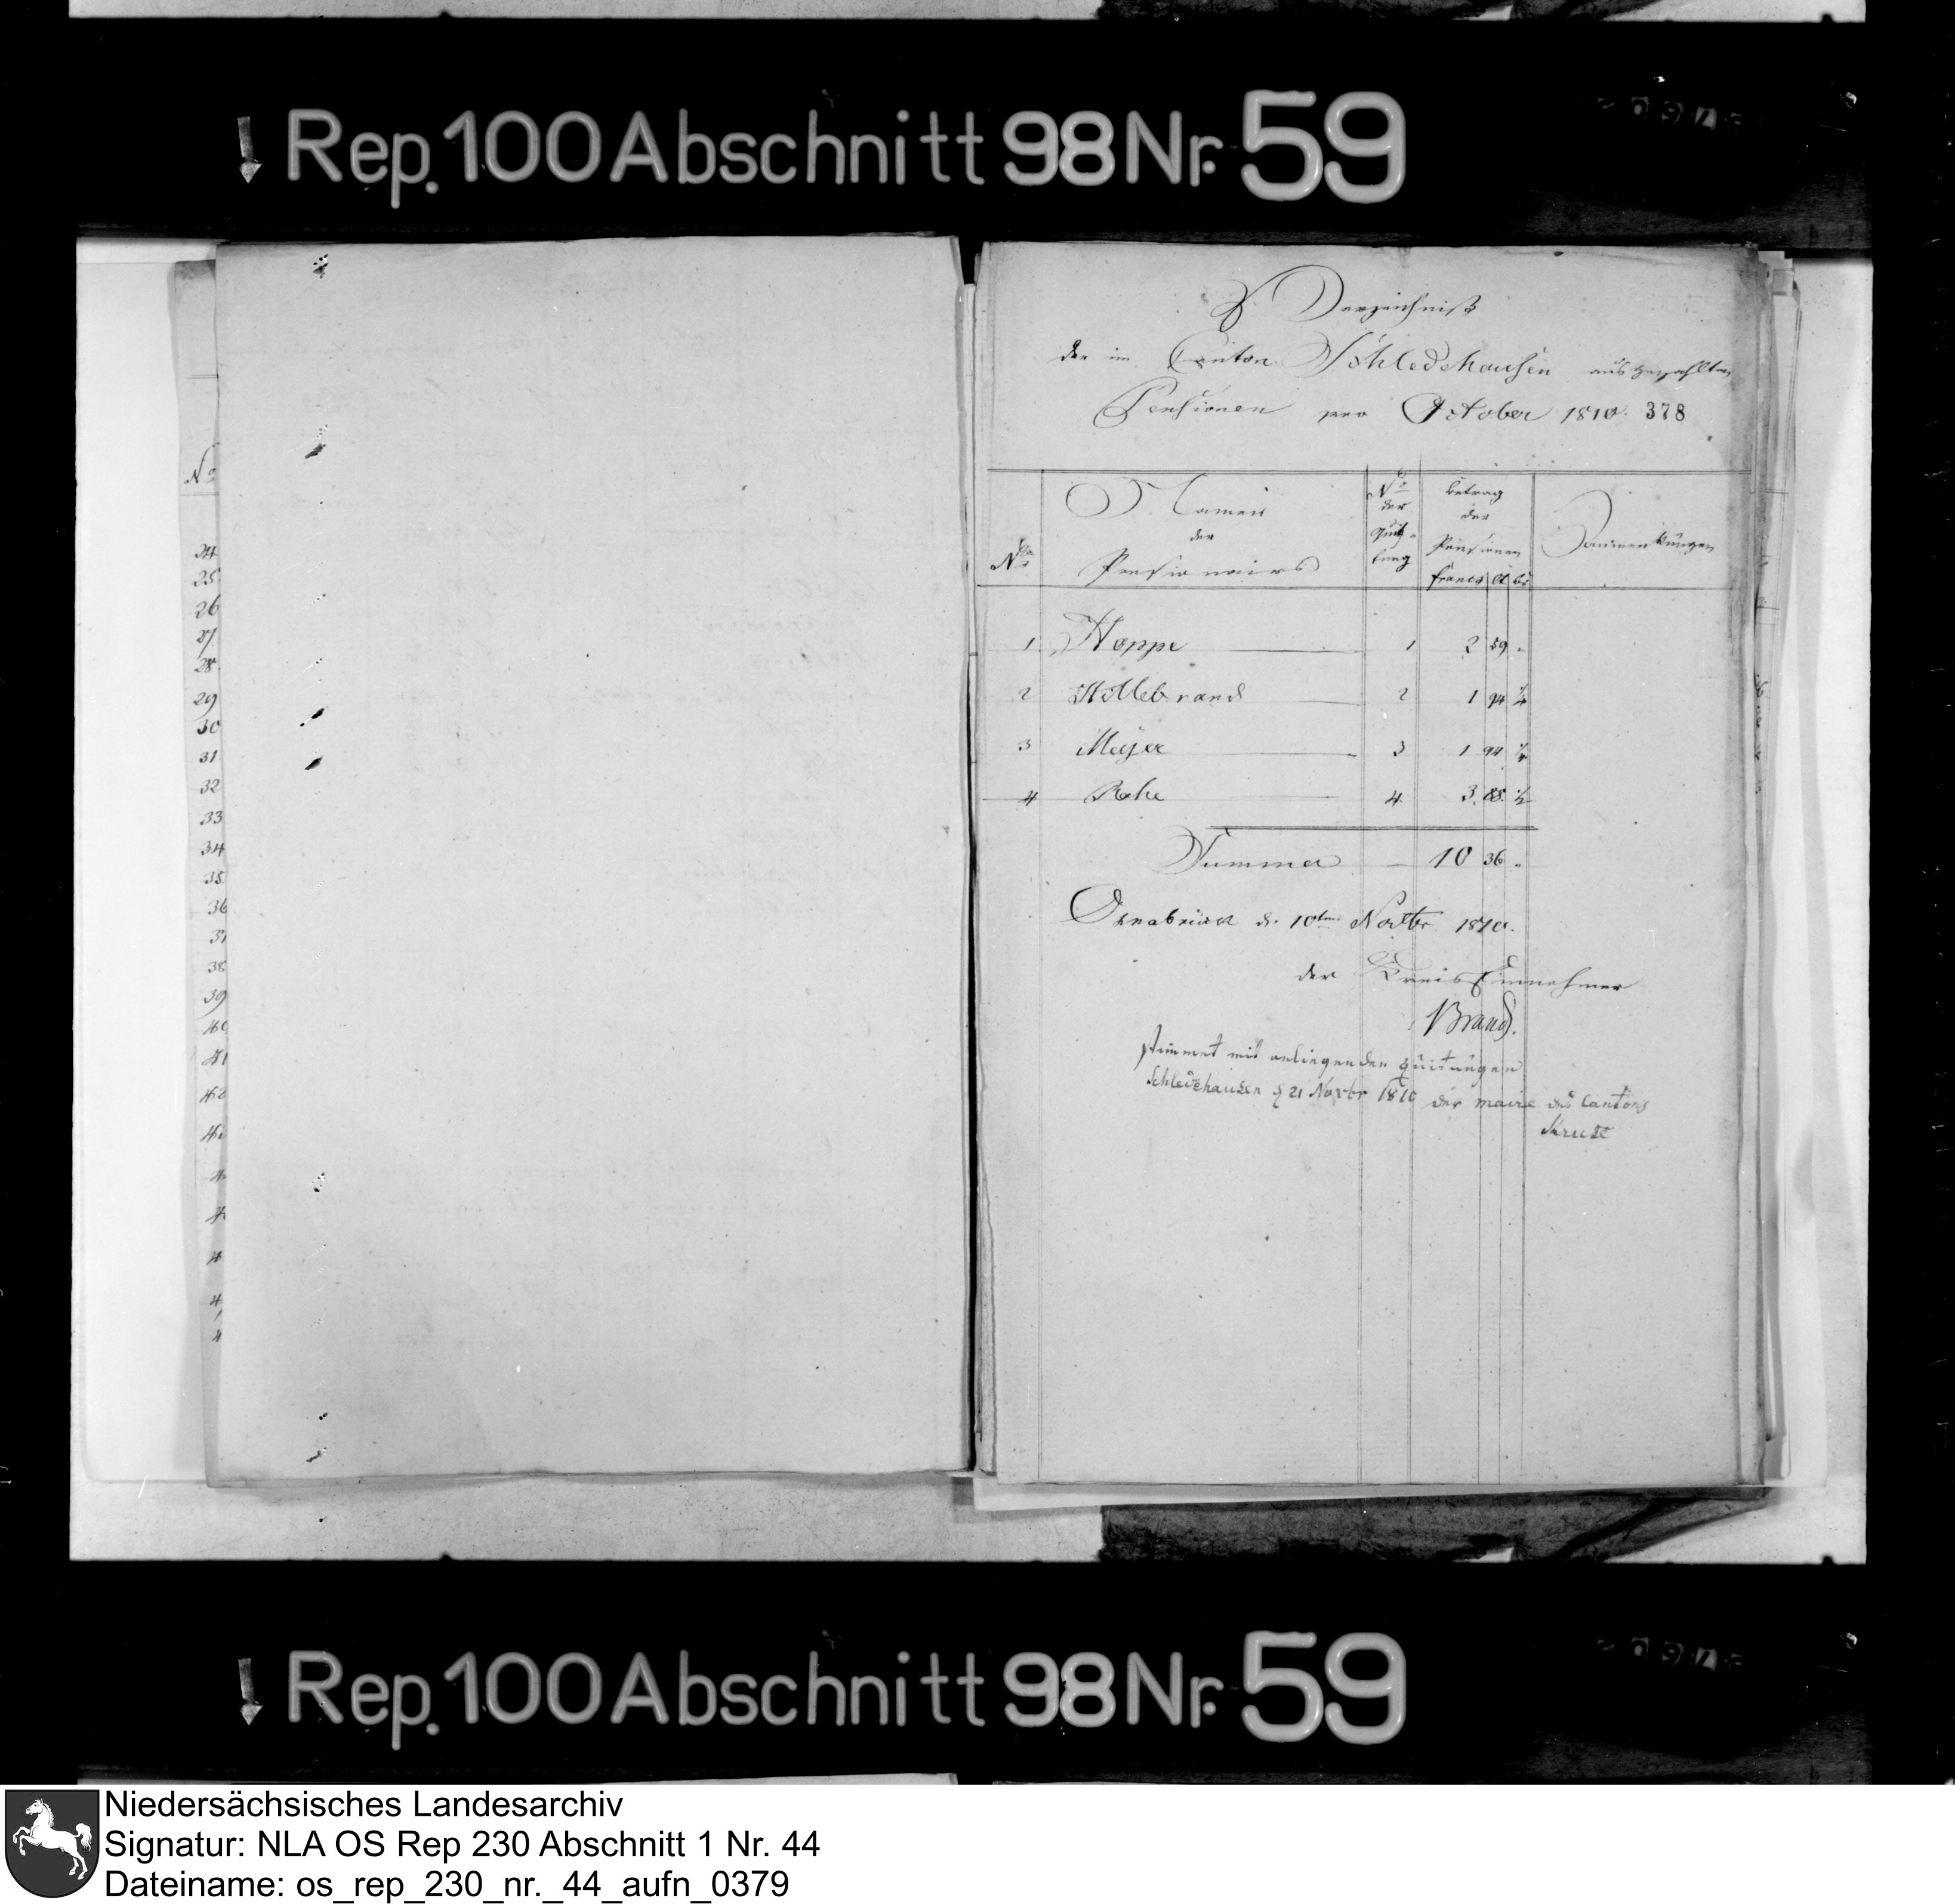 Rep. 100 Abschnitt 98 Nr. 59
No
24
25
26
27
28
29
30
31
32
33
34
35
36
37
38
39
40
41
42
Verzeichniß
der im Canton Schledehausen ausgezahlten
Pensionen pro October 1810. 378
No
Namen der Pensionairs
No der Quittung
Betrag der Pensionen
francs Ct
Bemerkungen
1 Hoppe 1 2 59 "
2 Hillebrand 2 1 94 1/4
3 Meyer 3 1 94 1/4
4 Rohe 4. 3. 88. 1/2
Summa 10 36 "
Osnabrück d. 10ten Novbr 1810.
der Kreis Einnehmer
Brand.
stimmet mit anliegenden quitungen
Schledehausen d 21 Novbr 1810 der maire des Cantons
Kruse
Rep. 100 Abschnitt 98 Nr. 59
Niedersächsisches Landesarchiv
Signatur: NLA OS Rep 230 Abschnitt 1 Nr. 44
Dateiname: os_rep_230_nr._44_aufn_0379